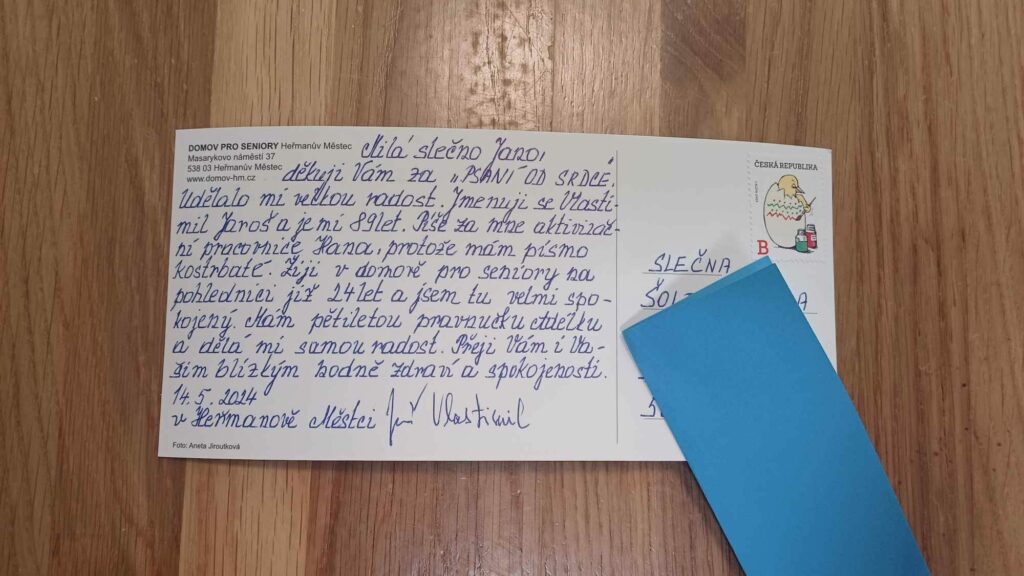 DOMOV PRO SENIORY Heřmanův Městec
Masarykovo náměstí 37
538 03 Heřmanův Městec
www.domov-hm.cz
Milá slečno Jano,
děkuji Vám za „PSANÍ OD SRDCE".
Udělalo mi velkou radost. Jmenuji se Vlasti-
mil Jaroš a je mi 89 let. Píše za mne aktivizač-
ní pracovnice Hana, protože mám písmo
kostrbaté. Žiji v domově pro seniory na
pohlednici již 24 let a jsem tu velmi spo-
kojený. Mám pětiletou pravnučku Adélku
a dělá mi samou radost. Přeji Vám i Va-
šim blízkým hodně zdraví a spokojenosti.
14.5. 2024
v Heřmanově Městci Vlastimil
Foto: Aneta Jiroutková
ČESKÁ REPUBLIKA
B
SLEČNA